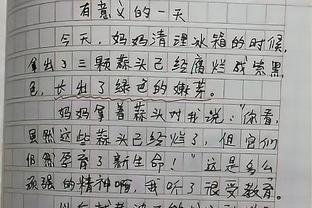 有意义的一天
今天，妈妈清理冰箱的时候，
拿出了三颗蒜头已经腐烂成炭黑
色，长出了绿色的嫩芽。
妈妈拿着蒜头对我说："你看，
虽然这些蒜头已经烂了，但它们
仍然孕育了新生命！"这是多么
顽强的精神啊，我听了很受教育。